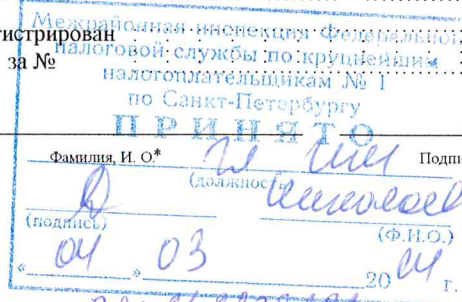 гистрирован
за №
Межрайонная инспекция Федеральной
налоговой службы по крупнейшим
налогоплательщикам № 1
по Санкт-Петербургу
ПРИНЯТО
Фамилия, И. О.*
Подпи
(должность)
(подпись)
(Ф.И.О.)
« 04 » 03 20 г.